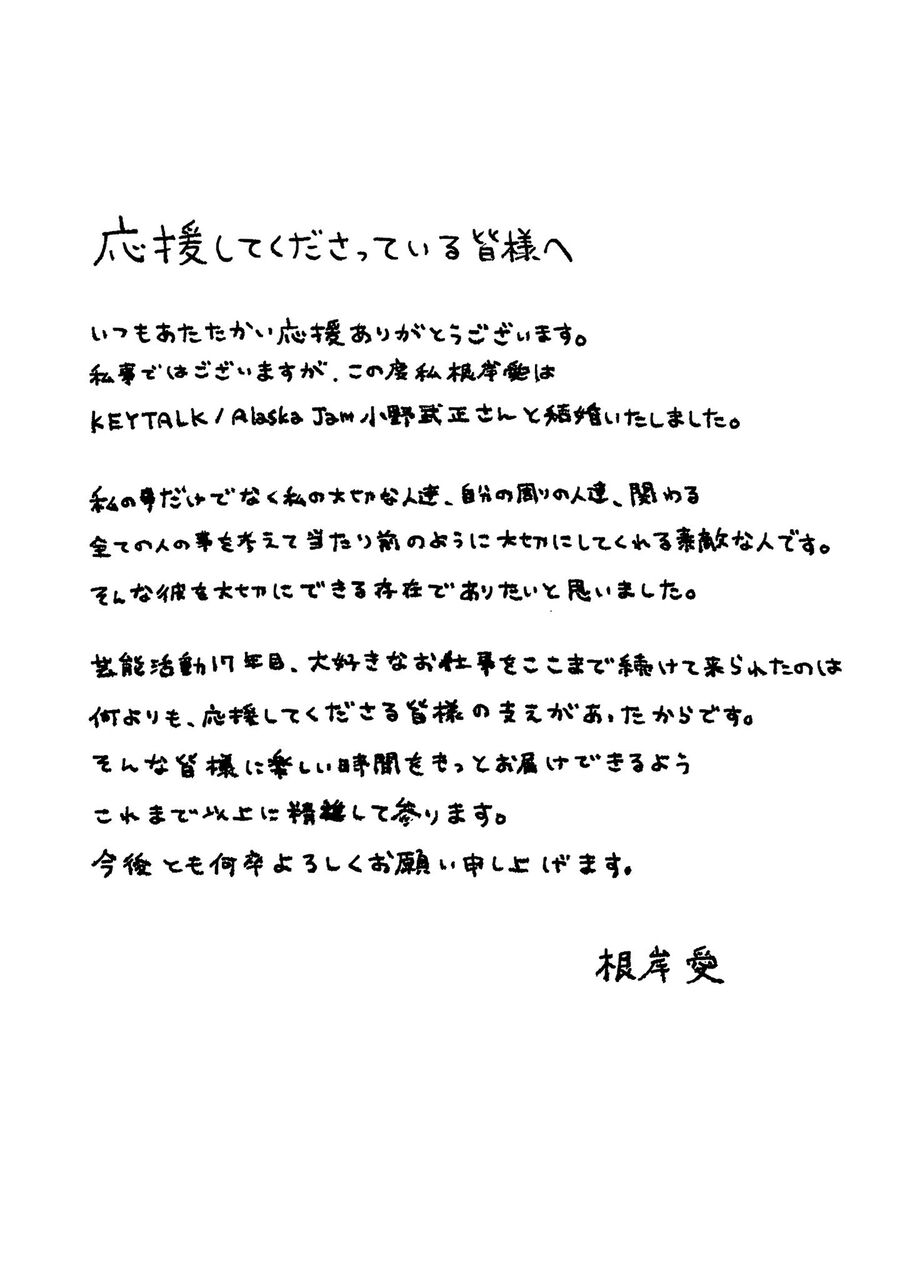 応援してくださっている皆様へ
いつもあたたかい応援ありがとうございます。
私事ではございますが、この度私根岸愛は
KEYTALK/Alaska Jam小野武正さんと結婚いたしました。
私の事だけでなく私の大切な人達、自分の周りの人達、関わる
全ての人の事を考えて当たり前のように大切にしてくれる素敵な人です。
そんな彼を大切にできる存在でありたいと思いました。
芸能活動17年目、大好きなお仕事をここまで続けて来られたのは
何よりも、応援してくださる皆様の支えがあったからです。
そんな皆様に楽しい時間をもっとお届けできるよう
これまで以上に精進して参ります。
今後とも何卒よろしくお願い申し上げます。
根岸愛